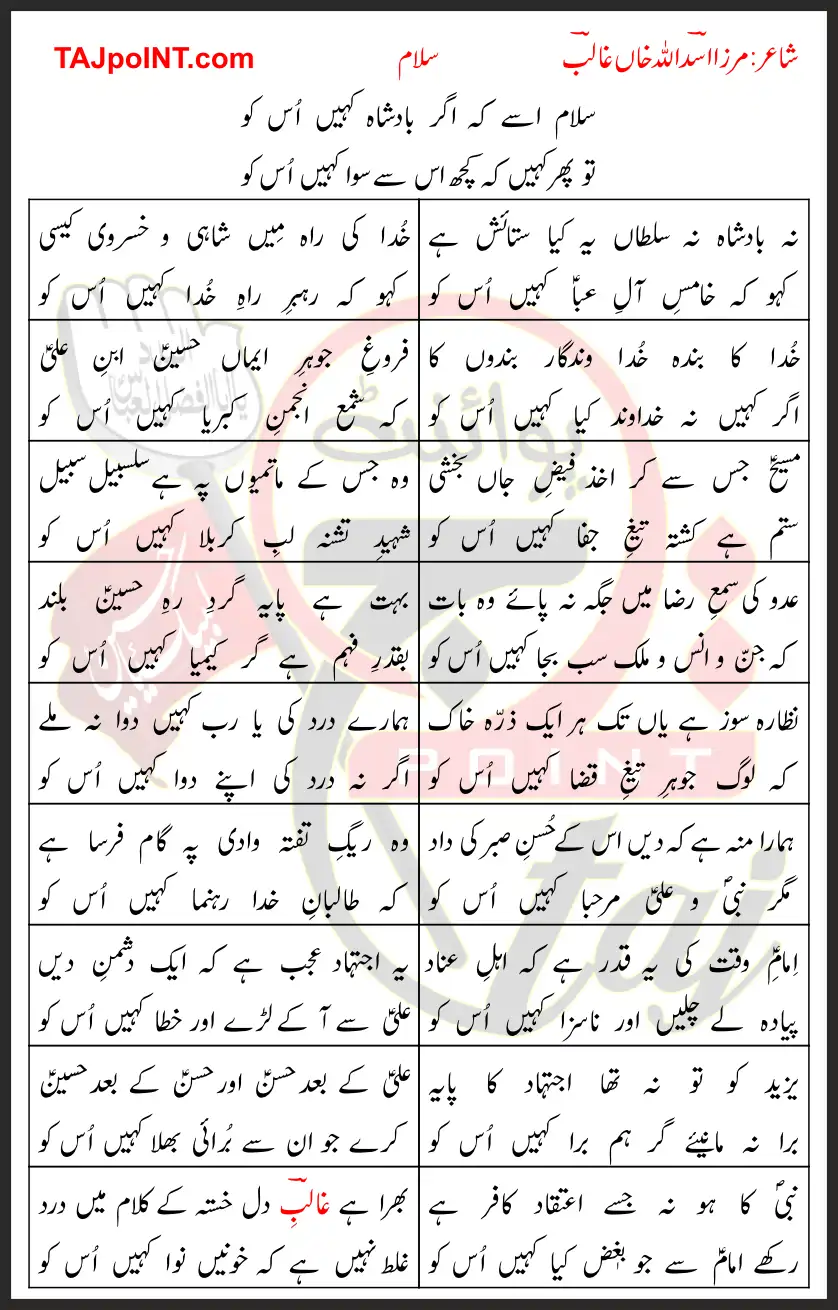 شاعر: مرزا اسد اللہ خاں غالب سلام TAJpoINT.com
سلام اسے کہ اگر بادشاہ کہیں اُس کو
تو پھر کہیں کہ کچھ اس سے سوا کہیں اُس کو
نہ بادشاہ نہ سلطاں یہ کیا ستائش ہے
کہو کہ خامسِ آلِ عباؑ کہیں اُس کو
خُدا کی راہ مِیں شاہی و خسروی کیسی
کہو کہ رہبرِ راہِ خُدا کہیں اُس کو
خُدا کا بندہ خُدا وندگار بندوں کا
اگر کہیں نہ خداوند کیا کہیں اُس کو
فروغِ جوہرِ ایماں حسینؑ ابنِ علیؑ
کہ شمع انجمنِ کبریا کہیں اُس کو
مسیحؑ جس سے کر اخذ فیضِ جاں بخشی
ستم ہے کشتہ تیغِ جفا کہیں اُس کو
وہ جس کے ماتمیوں پہ ہے سلسبیل سبیل
شہیدِ تشنہ لبِ کربلا کہیں اُس کو
عدو کی سمعِ رضا میں جگہ نہ پائے وہ بات
کہ جنّ و انس و ملک سب بجا کہیں اُس کو
بہت ہے پایہ گردِ رہِ حسینؑ بلند
بقدرِ فہم ہے گر کیمیا کہیں اُس کو
نظارہ سوز ہے یاں تک ہر ایک ذرّہ خاک
کہ لوگ جوہرِ تیغِ قضا کہیں اُس کو
ہمارے درد کی یا رب کہیں دوا نہ ملے
اگر نہ درد کی اپنے دوا کہیں اُس کو
ہمارا منہ ہے کہ دیں اس کے حُسنِ صبر کی داد
مگر نبیؐ و علیؑ مرحبا کہیں اُس کو
وہ ریگِ تفتہ وادی پہ گام فرسا ہے
کہ طالبانِ خدا رہنما کہیں اُس کو
اِمامِؑ وقت کی یہ قدر ہے کہ اہلِ عناد
پیادہ لے چلیں اور ناسزا کہیں اُس کو
یہ اجتہاد عجب ہے کہ ایک دشمنِ دیں
علیؑ سے آ کے لڑے اور خطا کہیں اُس کو
یزید کو تو نہ تھا اجتہاد کا پایہ
برا نہ مانیئے گر ہم برا کہیں اُس کو
علیؑ کے بعد حسنؑ اور حسنؑ کے بعد حسینؑ
کرے جو ان سے بُرائی بھلا کہیں اُس کو
نبیؐ کا ہو نہ جسے اعتقاد کافر ہے
رکھے امامؑ سے جو بغض کیا کہیں اُس کو
بھرا ہے غالبِ دل خستہ کے کلام میں درد
غلط نہیں ہے کہ خونیں نوا کہیں اُس کو
پوائنٹ
POINT
taj